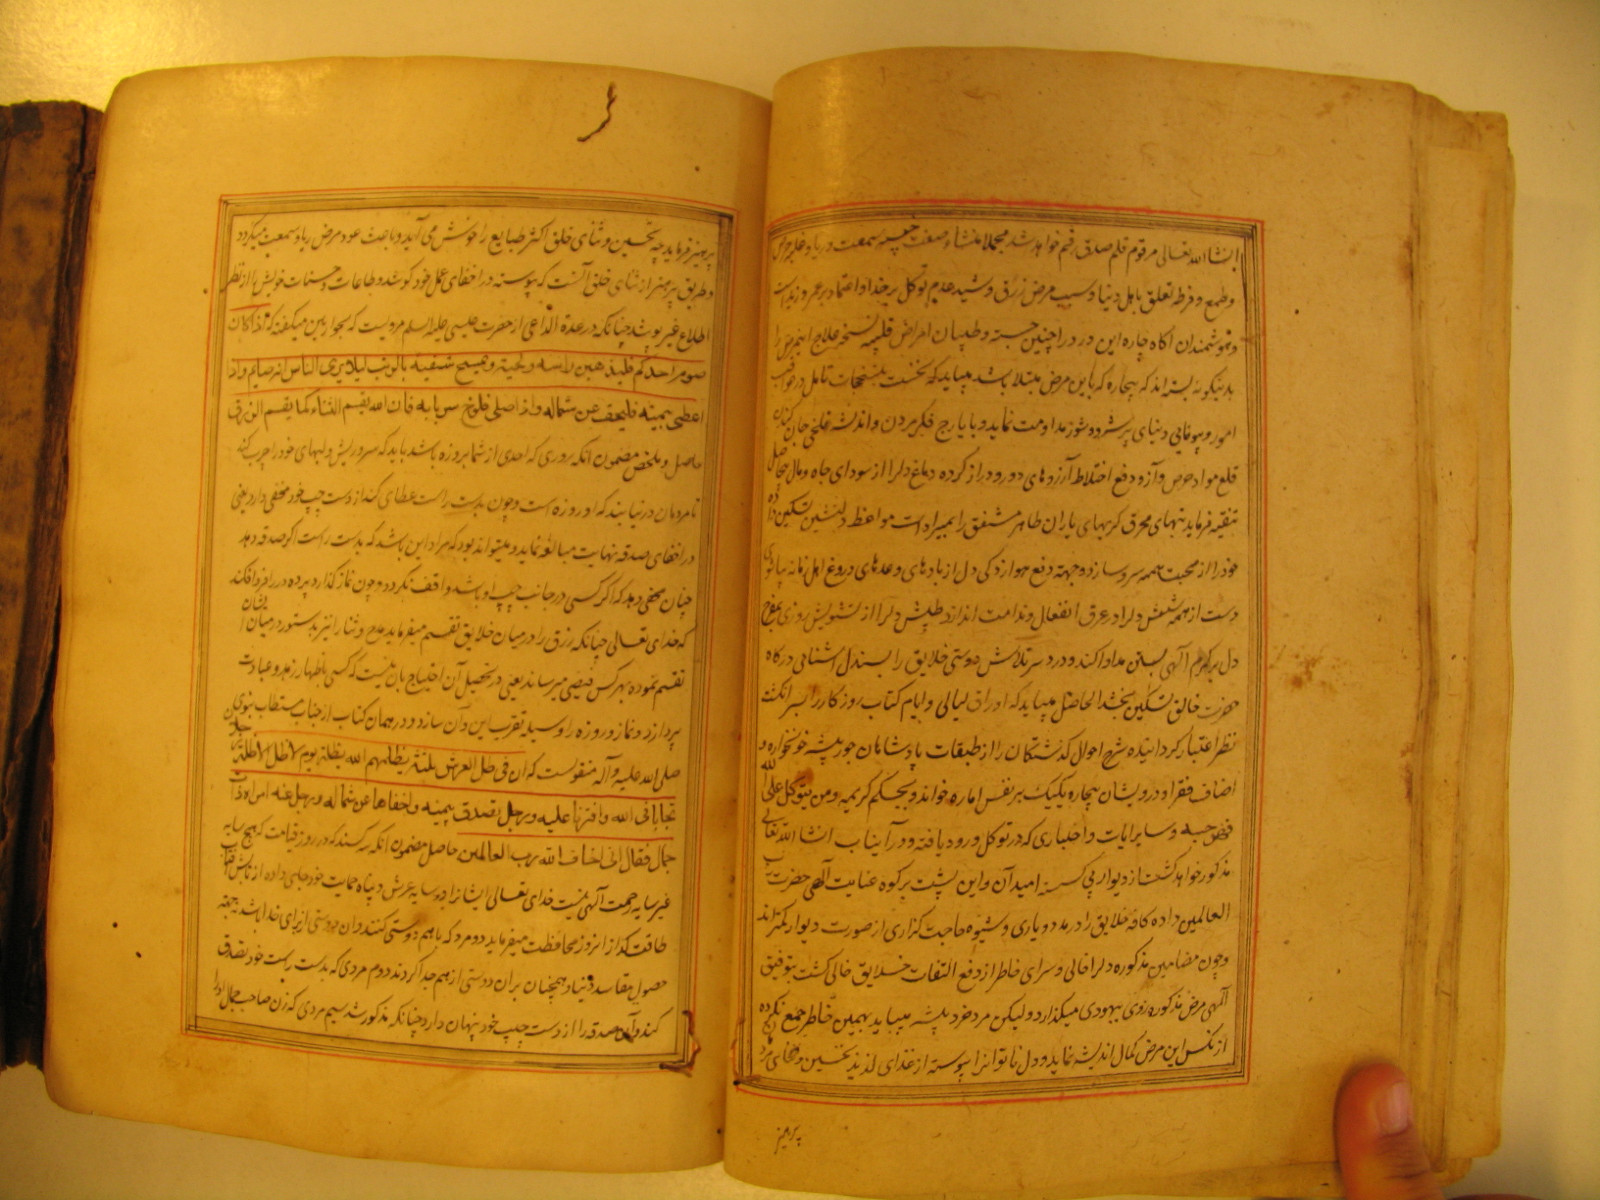 انشاالله تعالی مرقوم قلم صدق رقم خواهد شد مجملا منشاء صفت خبیثه سمعت و ریا و غلبه حرص
و طمع و فرط تعلق باهل دنیا و سبب مرض زرق و شید عدم توکل بر خدا و اعتماد بر عمرو و زید است
و هوشمندان اکاه چاره این درد را چنین جسته و طبیبان امراض قلبیه نسخه علاج این مرض را
بدینکونه بسته اند که بیچاره که باین مرض مبتلا باشد میباید که نخست بمنضجات تامل در عواقب
امور و بیوفایی دنیای پر شر و شور مداومت نماید و با یارج فکر مردن و اندیشه تلخی جان کندن
قلع مواد حرص و آز و دفع اختلاط آرزوهای دور و دراز کرده دماغ دلرا از سودای جاه و مال
تنقیه فرماید تبهای محرق کربهای یاران ظاهر مشفق را بمبردات مواعظ دلنشین تسکین داده
خود را از محبت همه سرد سازد و جهته دفع هوازدکی دل از بادهای وعدهای دروغ اهل زمانه
دست از همه شسته دلرا در عرق انفعال و ندامت اندازد طپش دلرا از تشویش روزی
دل بر کرم آلهی بستن مداوا کند و درد سر تلاش دوستی خلایق را بصندل آشنایی درکاه
حضرت خالق تسکین بخشد الحاصل میباید که اوراق لیالی و ایام کتاب روزکار را بسر انکشت
نظر اعتبار کردانیده شرح احوال کذشتکان را از طبقات پادشاهان جور پیشه خونخواره و
اصناف فقرا و درویشان بیچاره یکیک بر نفس اماره خواند و بحکم کریمه و من یتوکل علی الله
فهو حسبه و سایر ایات و اخباری که در توکل ورود یافته و در آن باب انشا الله تعالی
مذکور خواهد کشت از دیوار بی کسی امید آن و این پشت بر کوه عنایت آلهی حضرت رب
العالمین داده کافه خلایق را در مددیاری و شیوه حاجت کذاری از صورت دیوار کمتر داند
و چون مضامین مذکوره دلرا خالی و سرای خاطر از دفع التفات خلایق خالی کشت بتوفیق
آلهی مرض مذکوره روی ببهبودی میکذارد و لیکن مرد خرد پیشه میباید بهمین خاطر جمع نکرده
از نکس این مرض کمال اندیشه نماید و دل ناتوانرا پیوسته از غذای لذیذ تحسین و ثنای مردم
پرهیز
پرهیز فرماید چه تحسین و ثنای خلق اکثر طبایع را خوش می آید و باعث عود مرض ریا و سمعت میکردد
و طریق پرهیز از ثنای خلق آنست که پیوسته در اخفای عمل خود کوشد و طاعات و حسنات خویش را از نظر
اطلاع غیر پوشد چنانکه در عدة الداعی از حضرت عیسی علیه السلم مرویست که بحواریین میکفته که اذا کان
صوم احدکم فلیدهن راسه و لحیته و یمسح شفتیه بالزیت لیلا یری الناس انه صایم و اذا
اعطی بیمینه فلیخف عن شماله و اذا صلی فلیرخ ستر بابه فان الله یقسم الثناء کما یقسم الرزق
حاصل و ملخص مضمون آنکه روزی که احدی از شما بروزه باشد باید که سر و ریش و لبهای خود را چرب کند
تا مردمان در نیابند که او روزه است و چون بدست راست عطای کند از دست چپ خود مخفی دارد یعنی
در اخفای صدقه نهایت مبالغه نماید و میتواند بود که مراد این باشد که بدست راست اکر صدقه دهد
چنان مخفی دهد که اکر کسی در جانب چپ او باشد واقف نکردد و چون نماز کذارد پرده در را فرو افکند
که خدای تعالی چنانکه رزق را در میان خلایق تقسیم میفرماید مدح و ثنا را نیز بدستور در میان ایشان
تقسیم نموده بهر کس قیضی میرساند یعنی در تحصیل آن احتیاج بآن نیست که کسی باظهار زهد و عبادت
پردازد و نماز و روزه را وسیله تقرب این و آن سازد و در همان کتاب از جناب مستطاب نبوی
صلی الله علیه و آله منقولست که ان فی ظل العرش ثلثة یظلهم الله بظله یوم لا ظل الا ظله رجلان
تحابا فی الله و افترقا علیه و رجل تصدق بیمینه و اخفاها عن شماله و رجل دعته امراة ذات
جمال فقال انی اخاف الله رب العالمین حاصل مضمون آنکه سه کسند که در روز قیامت که هیچ سایه
غیر سایه رحمت آلهی نیست خدای تعالی ایشانرا در سایه عرش و پناه حمایت خود جای داده از تابش آفتاب
طاقت کداز انروز محافظت میفرماید دو مرد که با هم دوستی کنند و ان دوستی از برای خدا باشد نه بجهته
حصول مقاصد دنیا و همچنان بران دوستی از هم جدا کردند دوم مردی که بدست راست خود تصدق
کند و آن صدقه را از دست چپ خود پنهان دارد چنانکه مذکور شد سیم مردی که زن صاحب جمال او را